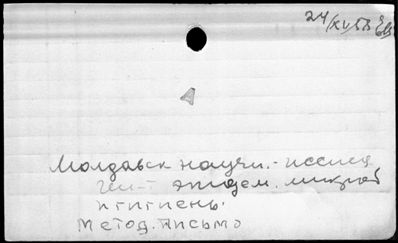 24/XI/58
А
Молдавск научн.-исслед
ин-т эпидем. микроб
и гигиены.
Метод. письмо